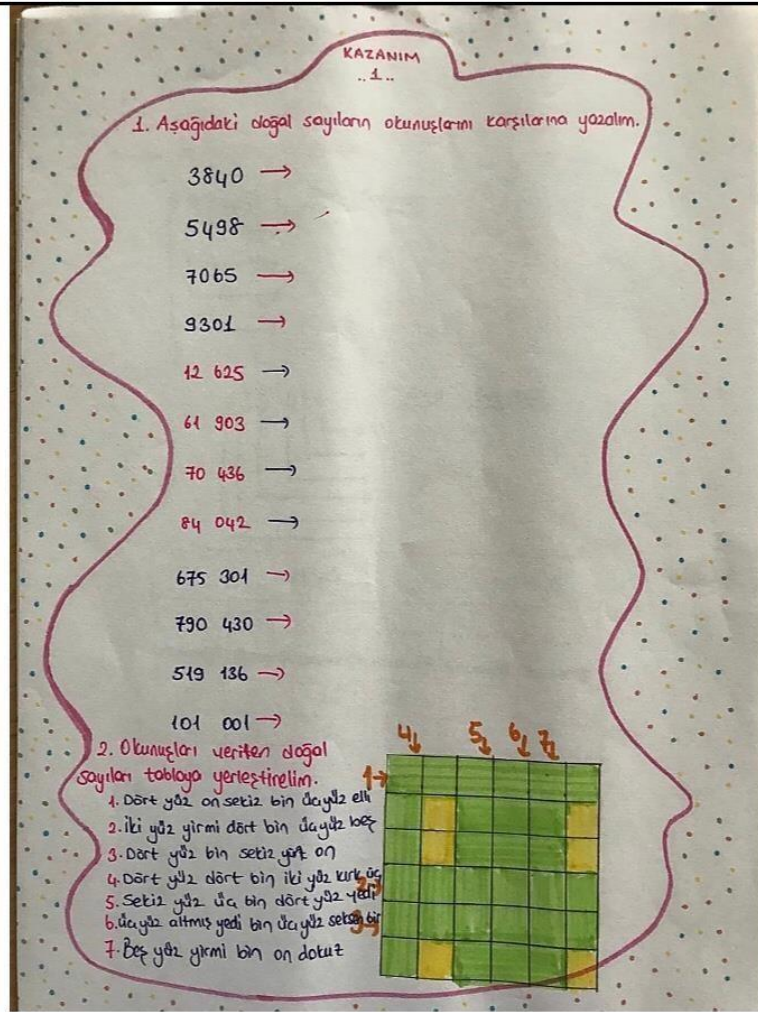 KAZANIM
..1..
1. Aşağıdaki doğal sayıların okunuşlarını karşılarına yazalım.
3840 →
5498 →
7065 →
9301 →
12 625 →
61 903 →
70 436 →
84 042 →
675 301 →
790 430 →
519 136 →
101 001 →
2. Okunuşları verilen doğal
sayıları tabloya yerleştirelim.
1. Dört yüz on sekiz bin üç yüz elli
2. iki yüz yirmi dört bin üç yüz beş
3. Dört yüz bin sekiz yüz on
4. Dört yüz dört bin iki yüz kırk üç
5. Sekiz yüz üç bin dört yüz yedi
6. üç yüz altmış yedi bin üç yüz seksen bir
7. Beş yüz yirmi bin on dokuz
4↓ 5↓ 6↓ 7↓
1→
2→
3→